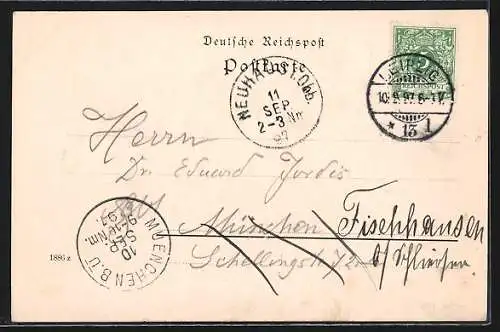 Deutsche Reichspost
Postkarte
REICHSPOST
LEIPZIG
10.9.97.6-7N.
* 13 f
NEUHAUS
11
SEP
2-3 Nm
97
Herrn
Dr. Eduard Jordis
München Fischhausen
Schellingstr. 72 b/Schliersee
MUENCHEN B.U.
10
SEP
Nm.
97
1886 z